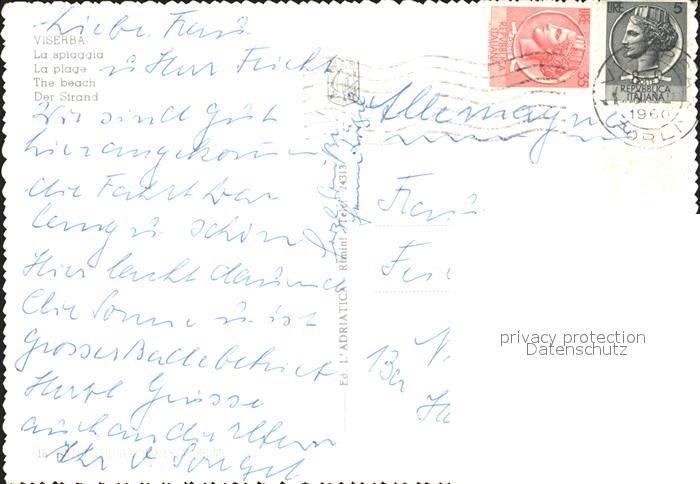 Liebe Frau
VISERBA
La spiaggia
La plage
The beach
Der Strand
u Herr Feicht
Wir sind gut
hier angekommen
die Fahrt war
lang u schön
Hier lacht dauernd
die Sonne u ist
Grosser Badebetrieb
Herzl Grüsse
auch an die Eltern
Ihr
Ed. L'ADRIATICA Rimini Telef. 24313
LIRE 35
REPVBBLICA
ITALIANA
LIRE 5
REPVBBLICA
ITALIANA
1960
FORLI
Allemagne
Frau
Fei
13a
privacy protection
Datenschutz